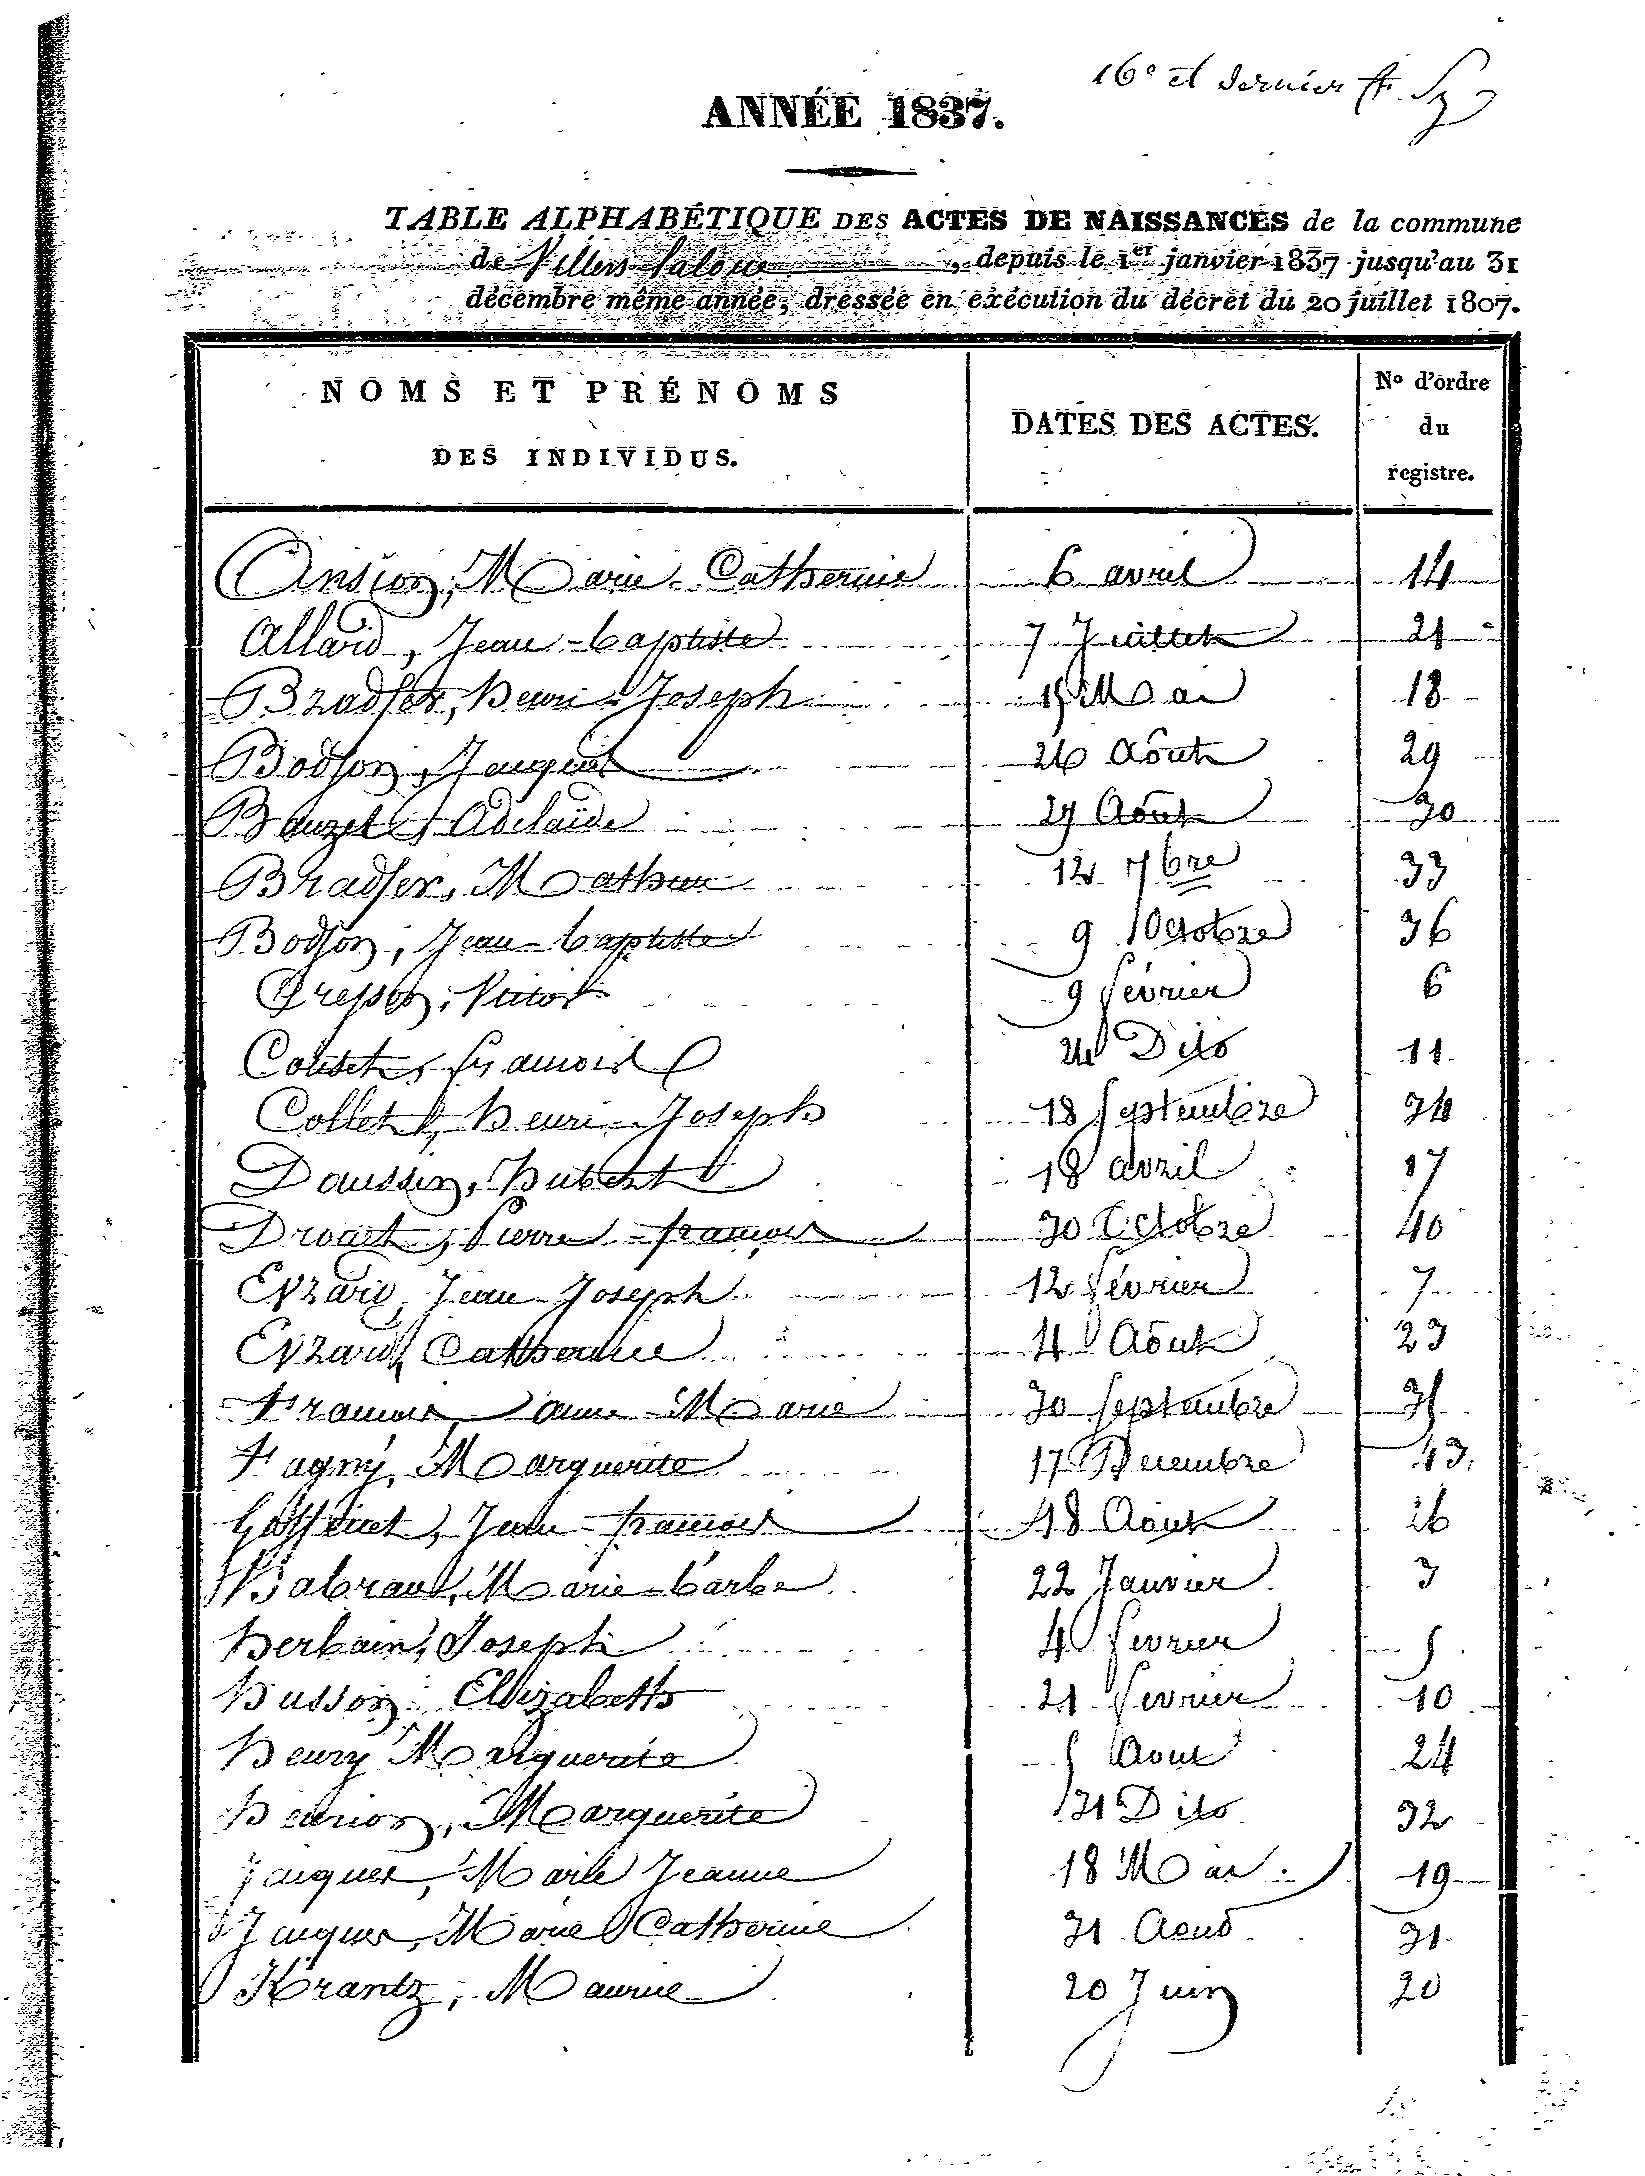 16e et dernier f.
ANNÉE 1837.
TABLE ALPHABÉTIQUE DES ACTES DE NAISSANCES de la commune
de Villers-, depuis le 1er janvier 1837 jusqu'au 31
décembre même année, dressée en exécution du décret du 20 juillet 1807.
NOMS ET PRÉNOMS
DES INDIVIDUS.
DATES DES ACTES.
No d'ordre
du
registre.
Ansion, Marie-Catherine 6 avril 14
Allard, Jean-baptiste 7 Juillet 21
Bradfer, henri-Joseph 15 Mai 18
Bodson, Jacques 26 Août 29
Bauzet, Adelaïde 27 Août 30
Bradfer, Mathieu 12 7bre 33
Bodson, Jean-baptiste 9 Octobre 36
Crespin, Victor 9 février 6
Couset, françois 24 Dito 11
Collet, henri-Joseph 18 septembre 34
Daussin, hubert 18 avril 17
Droart, Pierre-françois 30 Octobre 40
Evrard, Jean-Joseph 12 février 7
Evrard, Catherine 4 Août 23
François, anne-Marie 30 septembre 35
Fagny, Marguerite 17 Decembre 43
Gossinet, Jean-françois 18 Août 26
habran, Marie-barbe 22 Janvier 3
herbain, Joseph 4 fevrier 5
husson, Elizabeth 21 fevrier 10
henry Marguerite 5 Aout 24
henrion, Marguerite 31 Dito 32
Jacques, Marie Jeanne 18 Mai 19
Jacques, Marie Catherine 31 Aout 31
Krantz, Maurice 20 Juin 20